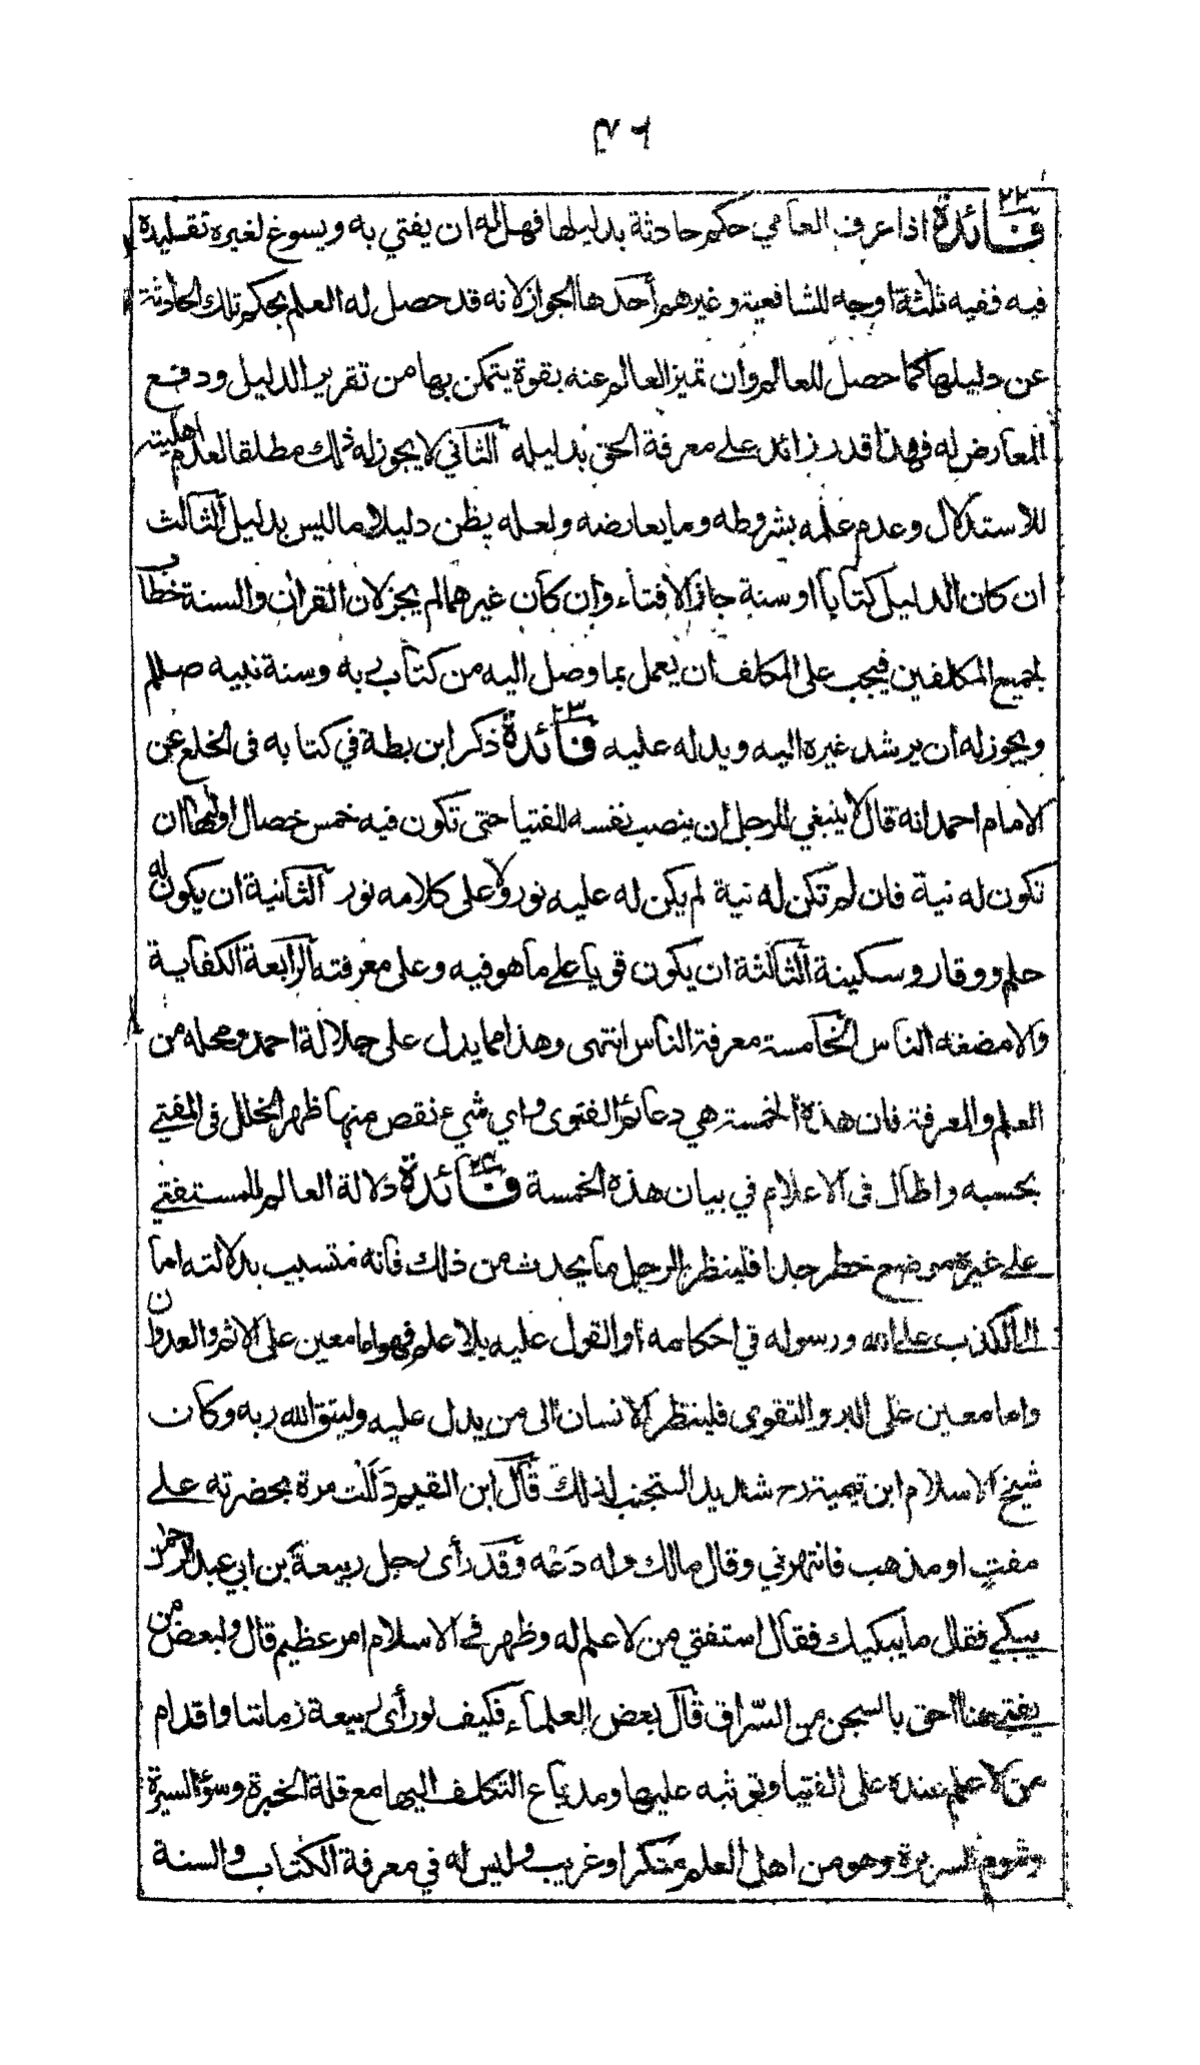 ٢٢
فائدة اذا عرف العامي حكم حادثة بدليلها فهل له ان يفتي به ويسوغ لغيره تقليده
فيه ففيه ثلثة اوجه للشافعية وغيرهم أحدها الجواز لانه قد حصل له العلم بحكم تلك الحادثة
عن دليلها كما حصل للعالم وان تميز العالم عنه بقوة يتمكن بها من تقرير الدليل ودفع
المعارض له فهذا قدر زائد على معرفة الحق بدليله الثاني لا يجوز له ذلك مطلقا لعدم اهليته
للاستدلال وعدم علمه بشروطه وما يعارضه ولعله يظن دليلا ما ليس بدليل الثالث
ان كان الدليل كتابا او سنة جاز الافتاء وان كان غيرهما لم يجز لان القران والسنة خطاب
لجميع المكلفين فيجب على المكلف ان يعمل بما وصل اليه من كتاب ربه وسنة نبيه صللم
ويجوز له ان يرشد غيره اليه ويدله عليه ٢٣ فائدة ذكر ابن بطة في كتابه في الخلع عن
الامام احمد انه قال لا ينبغي للرجل ان ينصب نفسه للفتيا حتى تكون فيه خمس خصال اولها ان
تكون له نية فان لم تكن له نية لم يكن له عليه نور ولا على كلامه نور الثانية ان يكون له
حلم ووقار وسكينة الثالثة ان يكون قويا على ما هو فيه وعلى معرفته الرابعة الكفاية
والا مضغه الناس الخامسة معرفة الناس انتهى وهذا مما يدل على جلالة احمد ومحله من
العلم والمعرفة فان هذه الخمسة هي دعائم الفتوى واي شيء نقص منها ظهر الخلل في المفتي
بحسبه واطال في الاعلام في بيان هذه الخمسة ٢٤ فائدة دلالة العالم للمستفتي
على غيره موضع خطر جدا فلينظر الرجل ما يحدث من ذلك فانه متسبب بدلالته اما
الى الكذب على الله ورسوله في احكامه او القول عليه بلا علم فهو اما معين على الاثم والعدوان
واما معين على البر والتقوى فلينظر الانسان الى من يدل عليه وليتق الله ربه وكان
شيخ الاسلام ابن تيمية رح شديد التجنب لذلك قال ابن القيم دَلَلْت مرة بحضرته على
مفتٍ او مذهب فانتهرني وقال مالك وله دَعْه وقد رأى رجل ربيعة بن ابي عبد الرحمن
يبكي فقال ما يبكيك فقال استفتي من لا علم له وظهر في الاسلام امر عظيم قال ولبعض من
يفتي هنا احق بالسجن من السّراق قال بعض العلماء فكيف لو رأى ربيعة زماننا واقدام
من لا علم عنده على الفتيا وتوثبه عليها ومد باع التكلف اليها مع قلة الخبرة وسوء السيرة
وشوم السريرة وهو من اهل العلم منكر او غريب وليس له في معرفة الكتاب والسنة